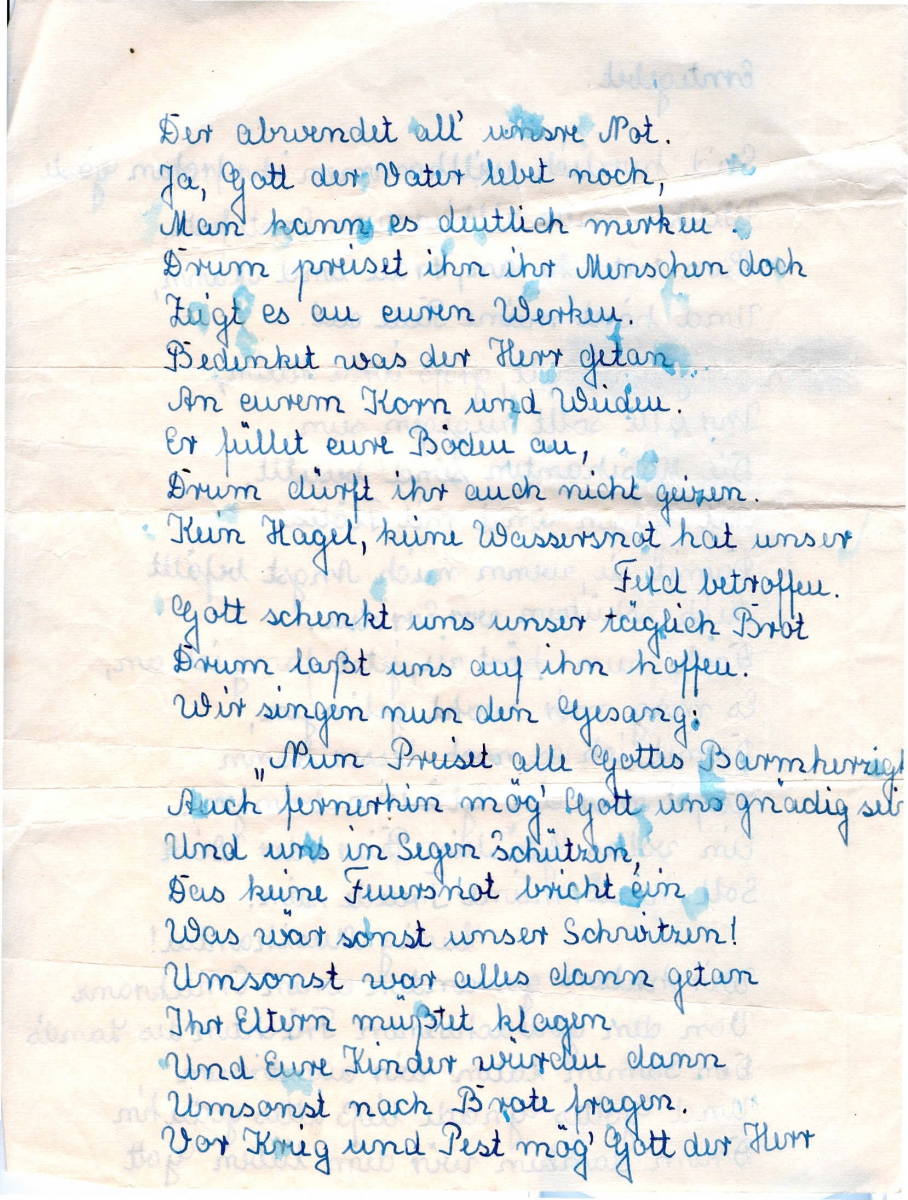 Der abwendet all' unsre Not.
Ja, Gott der Vater lebet noch,
Man kann es deutlich merken.
Drum preiset ihn ihr Menschen doch
Zeigt es an euren Werken.
Bedenket was der Herr getan
An eurem Korn und Weiden.
Er füllet eure Böden an,
Drum dürft ihr auch nicht geizen.
Kein Hagel, keine Wassersnot hat unser
Feld betroffen.
Gott schenkt uns unser täglich Brot
Drum laßt uns auf ihn hoffen.
Wir singen nun den Gesang:
„Nun Preiset alle Gottes Barmherzigk
Auch fernerhin mög' Gott uns gnädig sein
Und uns in Segen schützen,
Das keine Feuersnot bricht ein
Was wär sonst unser Schwitzen!
Umsonst war alles dann getan
Ihr Eltern müßtet klagen
Und Eure Kinder würden dann
Umsonst nach Brote fragen.
Vor Krieg und Pest mög' Gott der Herr